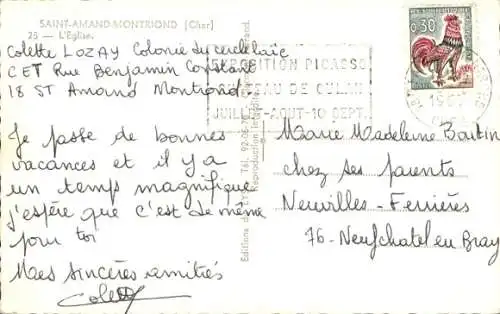 SAINT-AMAND-MONTROND (Cher)
25 — L'Église.
Colette LOZAY Colonie du cercle laïc
CET Rue Benjamin Constant
18 ST Amand Montrond
EXPOSITION PICASSO
EAU DE CULAN
JUILLET-AOUT-10 SEPT.
0,30
Je passe de bonnes
vacances et il y a
un temps magnifique
j'espère que c'est de même
pour toi
Mes sincères amitiés
Colette
Marie Madeleine Boutin
chez ses parents
Neuvilles-Ferrières
76-Neufchatel en Bray